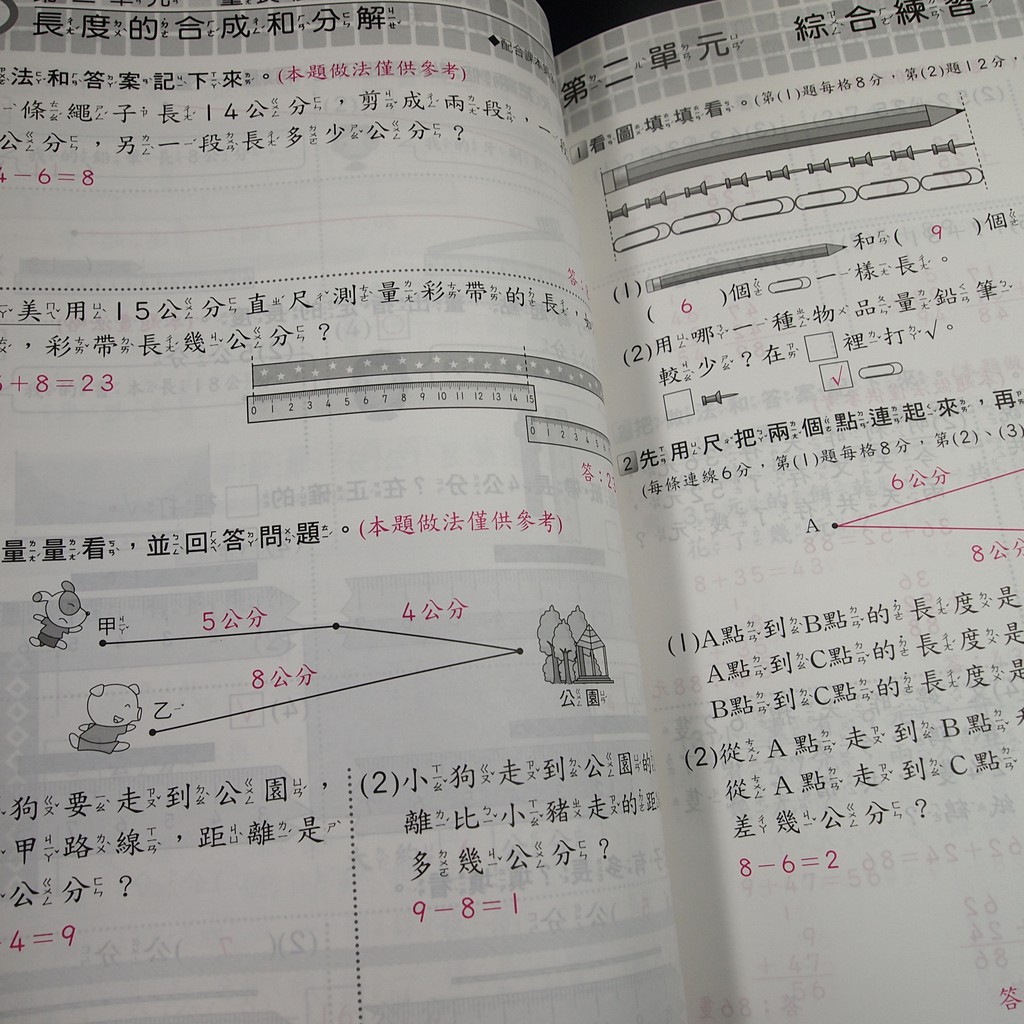 長度的合成和分解
◆配合課本
法和答案記下來。(本題做法僅供參考)
一條繩子長14公分,剪成兩段,一
公分,另一段長多少公分?
4-6=8
答:
美用15公分直尺測量彩帶的長,
,彩帶長幾公分?
5+8=23
0 1 2 3 4 5 6 7 8 9 10 11 12 13 14 15
0 1 2 3 4 5
答:2
量量看,並回答問題。(本題做法僅供參考)
甲
5公分
4公分
公園
8公分
乙
狗要走到公園,
甲路線,距離是
公分?
4=9
(2)小狗走到公園的
離比小豬走的距
多幾公分?
9-8=1
第二單元 綜合練習
1 看圖填填看。(第(1)題每格8分,第(2)題12分,
(1) 和( 9 )個
( 6 )個 一樣長。
(2)用哪一種物品量鉛筆
較少?在 裡打√。
√
2 先用尺把兩個點連起來,再
(每條連線6分,第(1)題每格8分,第(2)、(3)
6公分
A
8公分
(1)A點到B點的長度是
A點到C點的長度是
B點到C點的長度是
(2)從A點走到B點
從A點走到C點
差幾公分?
8-6=2
答